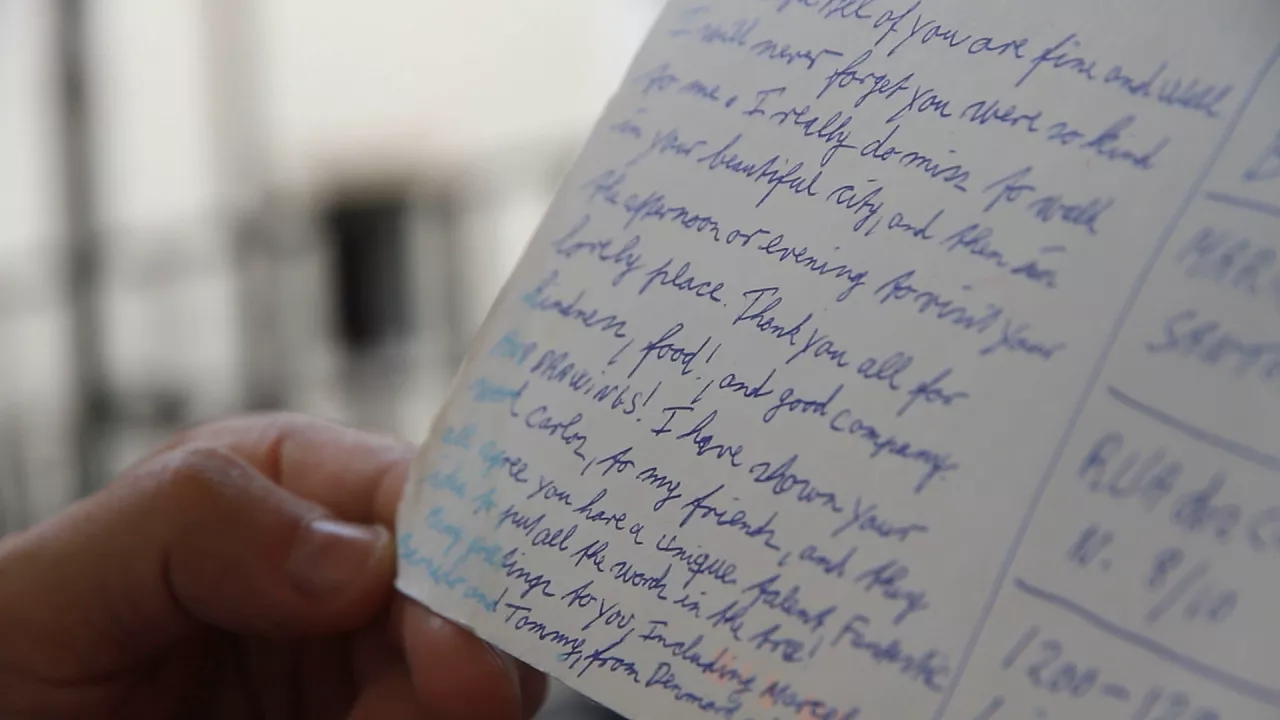 all of you are fine and well
I will never forget you were so kind
to me. I really do miss to walk
in your beautiful city, and then in
the afternoon or evening to visit your
lovely place. Thank you all for
kindness, food!, and good company.
DRAWINGS! I have shown your
work Carlos, to my friends, and they
all agree you have a unique talent. Fantastic
idea to put all the words in the tree!
greetings to you, Including Marcel
and Tommy, from Denmark
RUA dos C
N. 8/10
1200-1